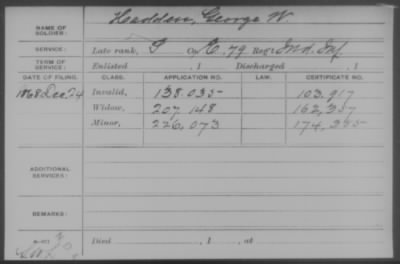 NAME OF SOLDIER: Hedden, George W.
SERVICE: Late rank, P Co. E, 79 Reg't Ind. Inf
TERM OF SERVICE: Enlisted , 1 Discharged , 1
DATE OF FILING. CLASS. APPLICATION NO. LAW. CERTIFICATE NO.
1868 Dec 24 Invalid, 138.035 103.917
Widow, 207,148 162,357
Minor, 226,073 174,355
ADDITIONAL SERVICES:
REMARKS:
Died , 1 , at